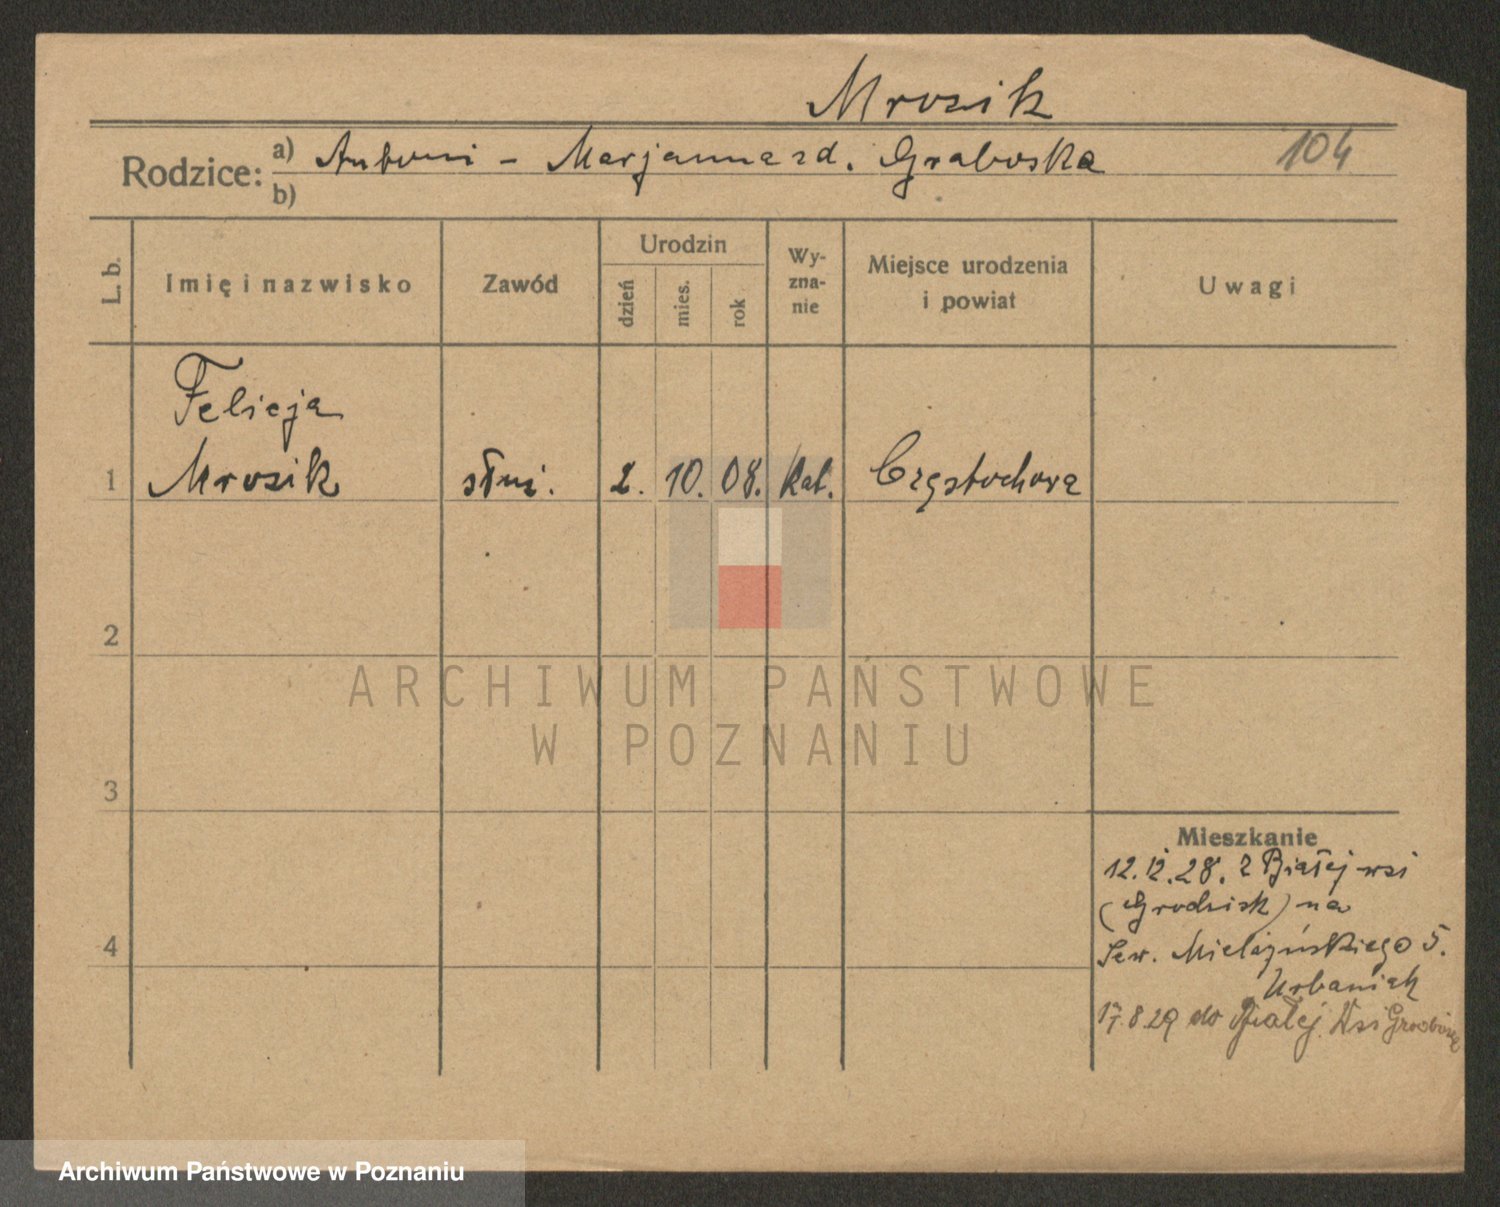 Mrozik
Rodzice: a) Antoni - Marjanna zd. Graboska 104
b)
L. b. Imię i nazwisko Zawód Urodzin dzień mies. rok Wyznanie Miejsce urodzenia i powiat Uwagi
Felicja
1 Mrozik służ. 2. 10. 08. kat. Częstochowa
2
ARCHIWUM PAŃSTWOWE
W POZNANIU
3
Mieszkanie
12. 12. 28. z Białej wsi
(Grodzisk) na
4
Sew. Mielżyńskiego 5.
Urbaniak
8.29 do Białej Wsi
Archiwum Państwowe w Poznaniu